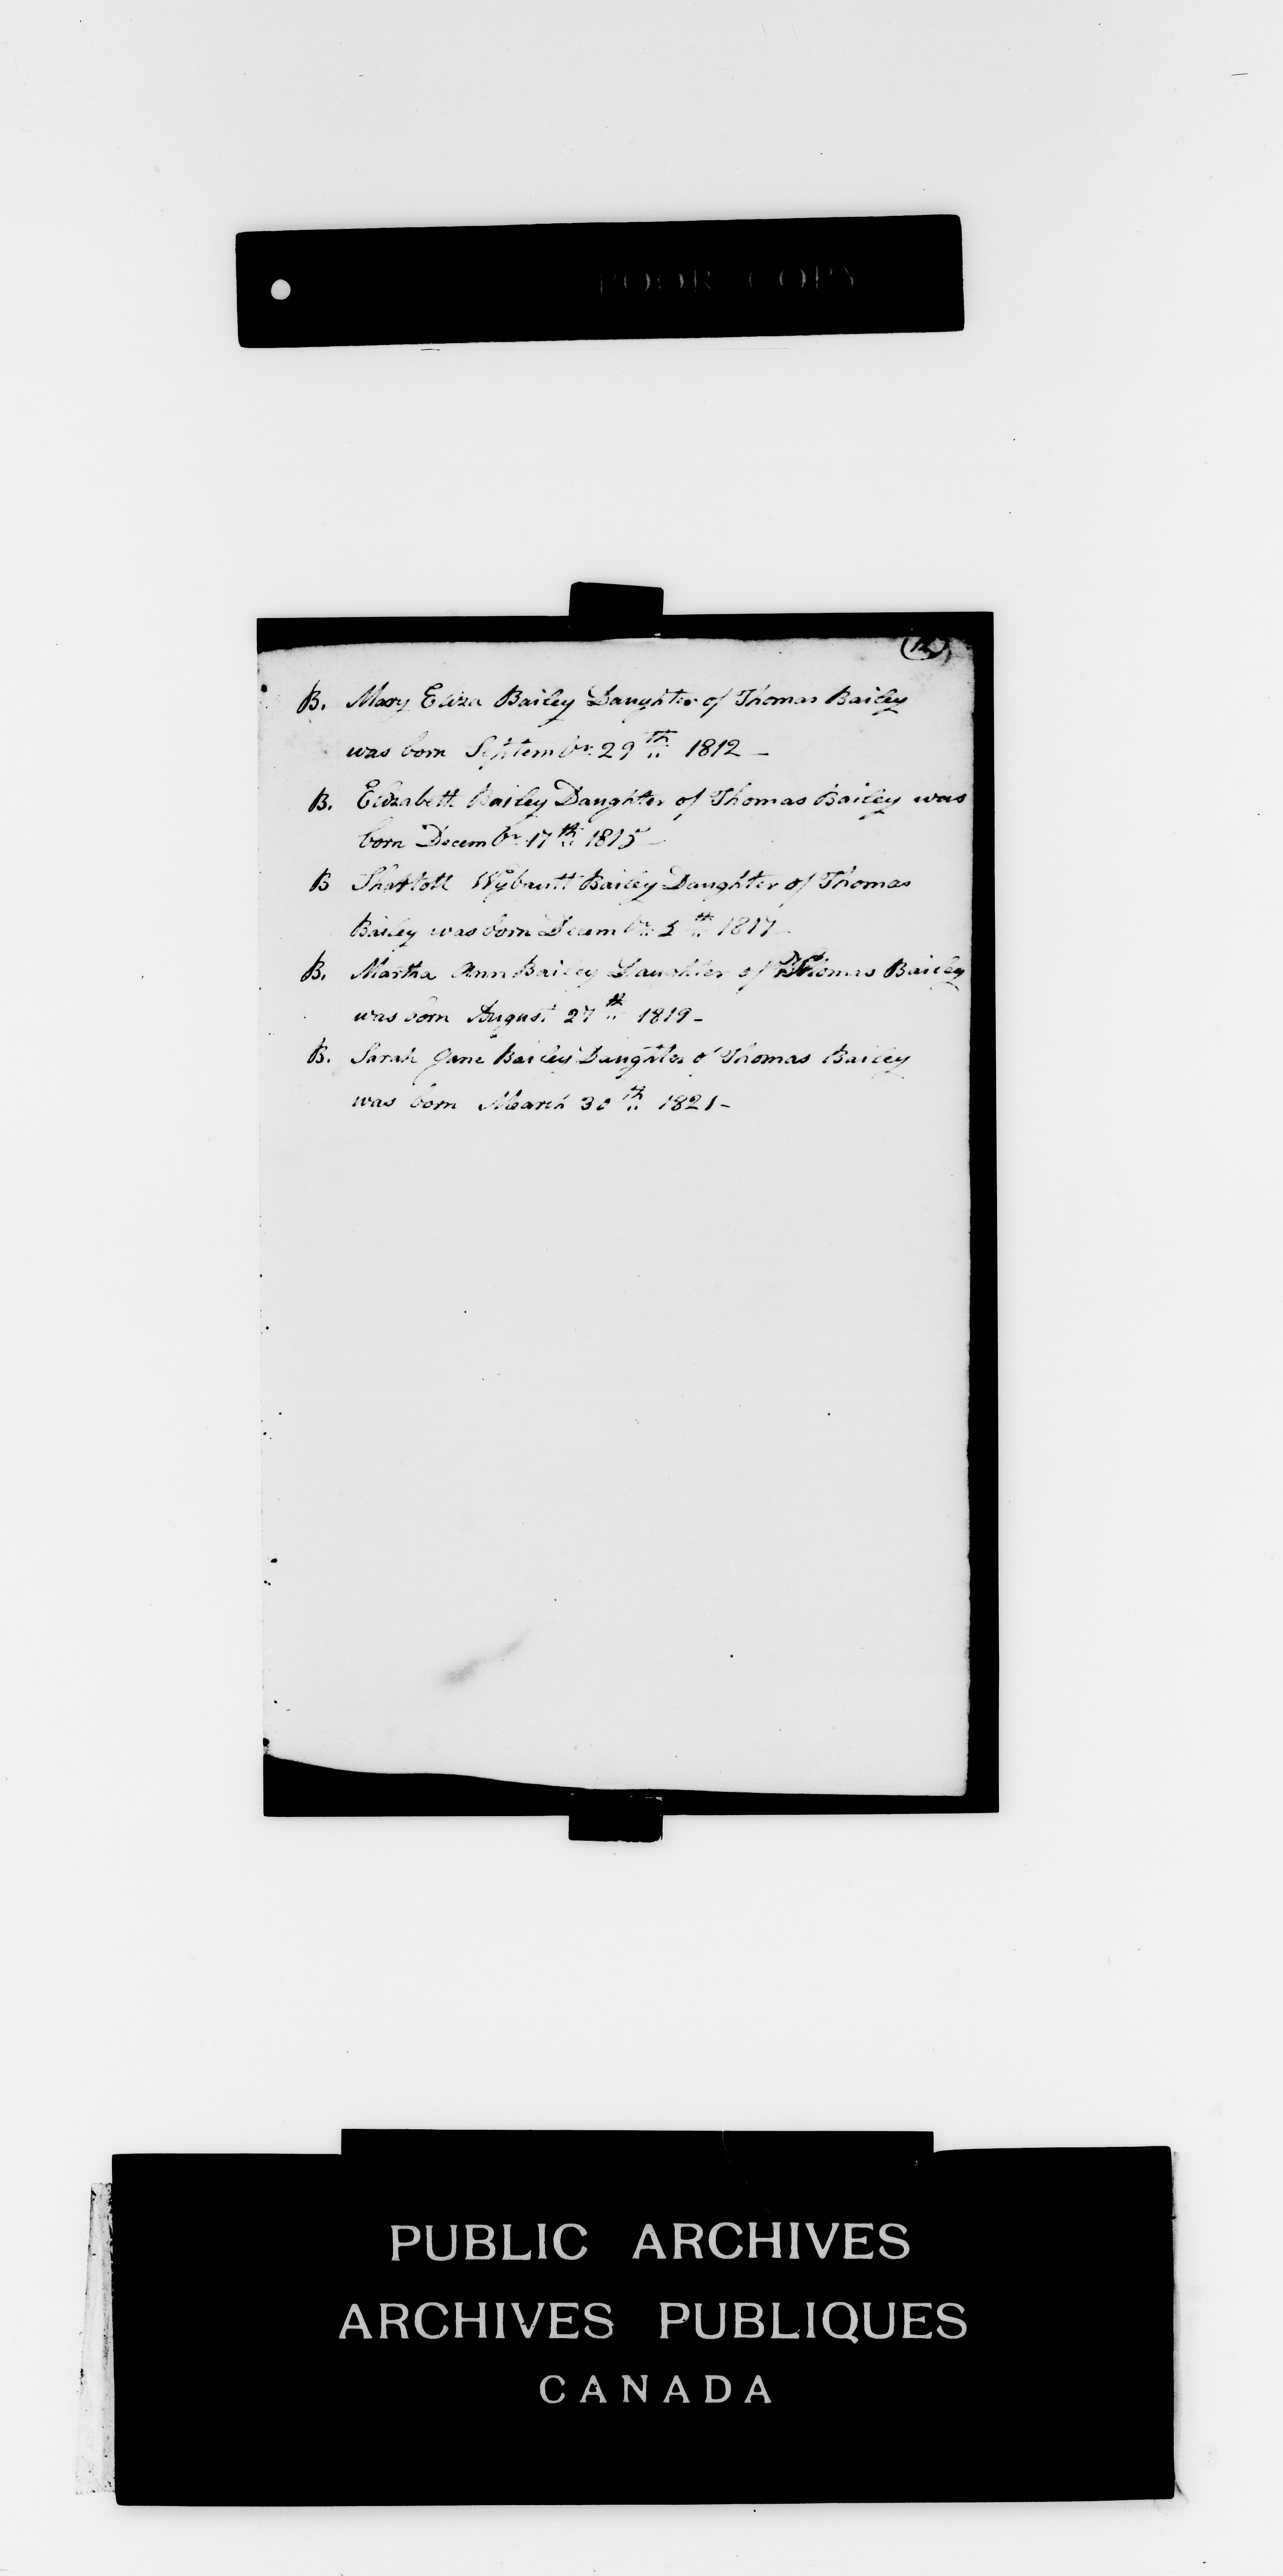 POOR COPY
B. Mary Eliza Bailey Daughter of Thomas Bailey
was born Septembr. 29th 1812 —
B. Elizabeth Bailey Daughter of Thomas Bailey was
born Decembr. 17th 1815 —
B Sharlott Bailey Daughter of Thomas
Bailey was born Decembr. 5th 1817 —
B. Martha Ann Bailey Daughter of Thomas Bailey
was born August 27th 1819 —
B. Sarah Jane Bailey Daughter of Thomas Bailey
was born March 30th 1821 —
PUBLIC ARCHIVES
ARCHIVES PUBLIQUES
CANADA